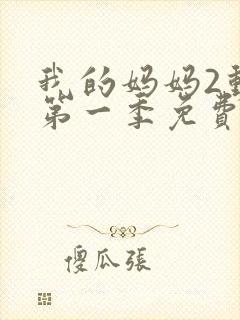 我的妈妈2動
第一季免費
傻瓜張